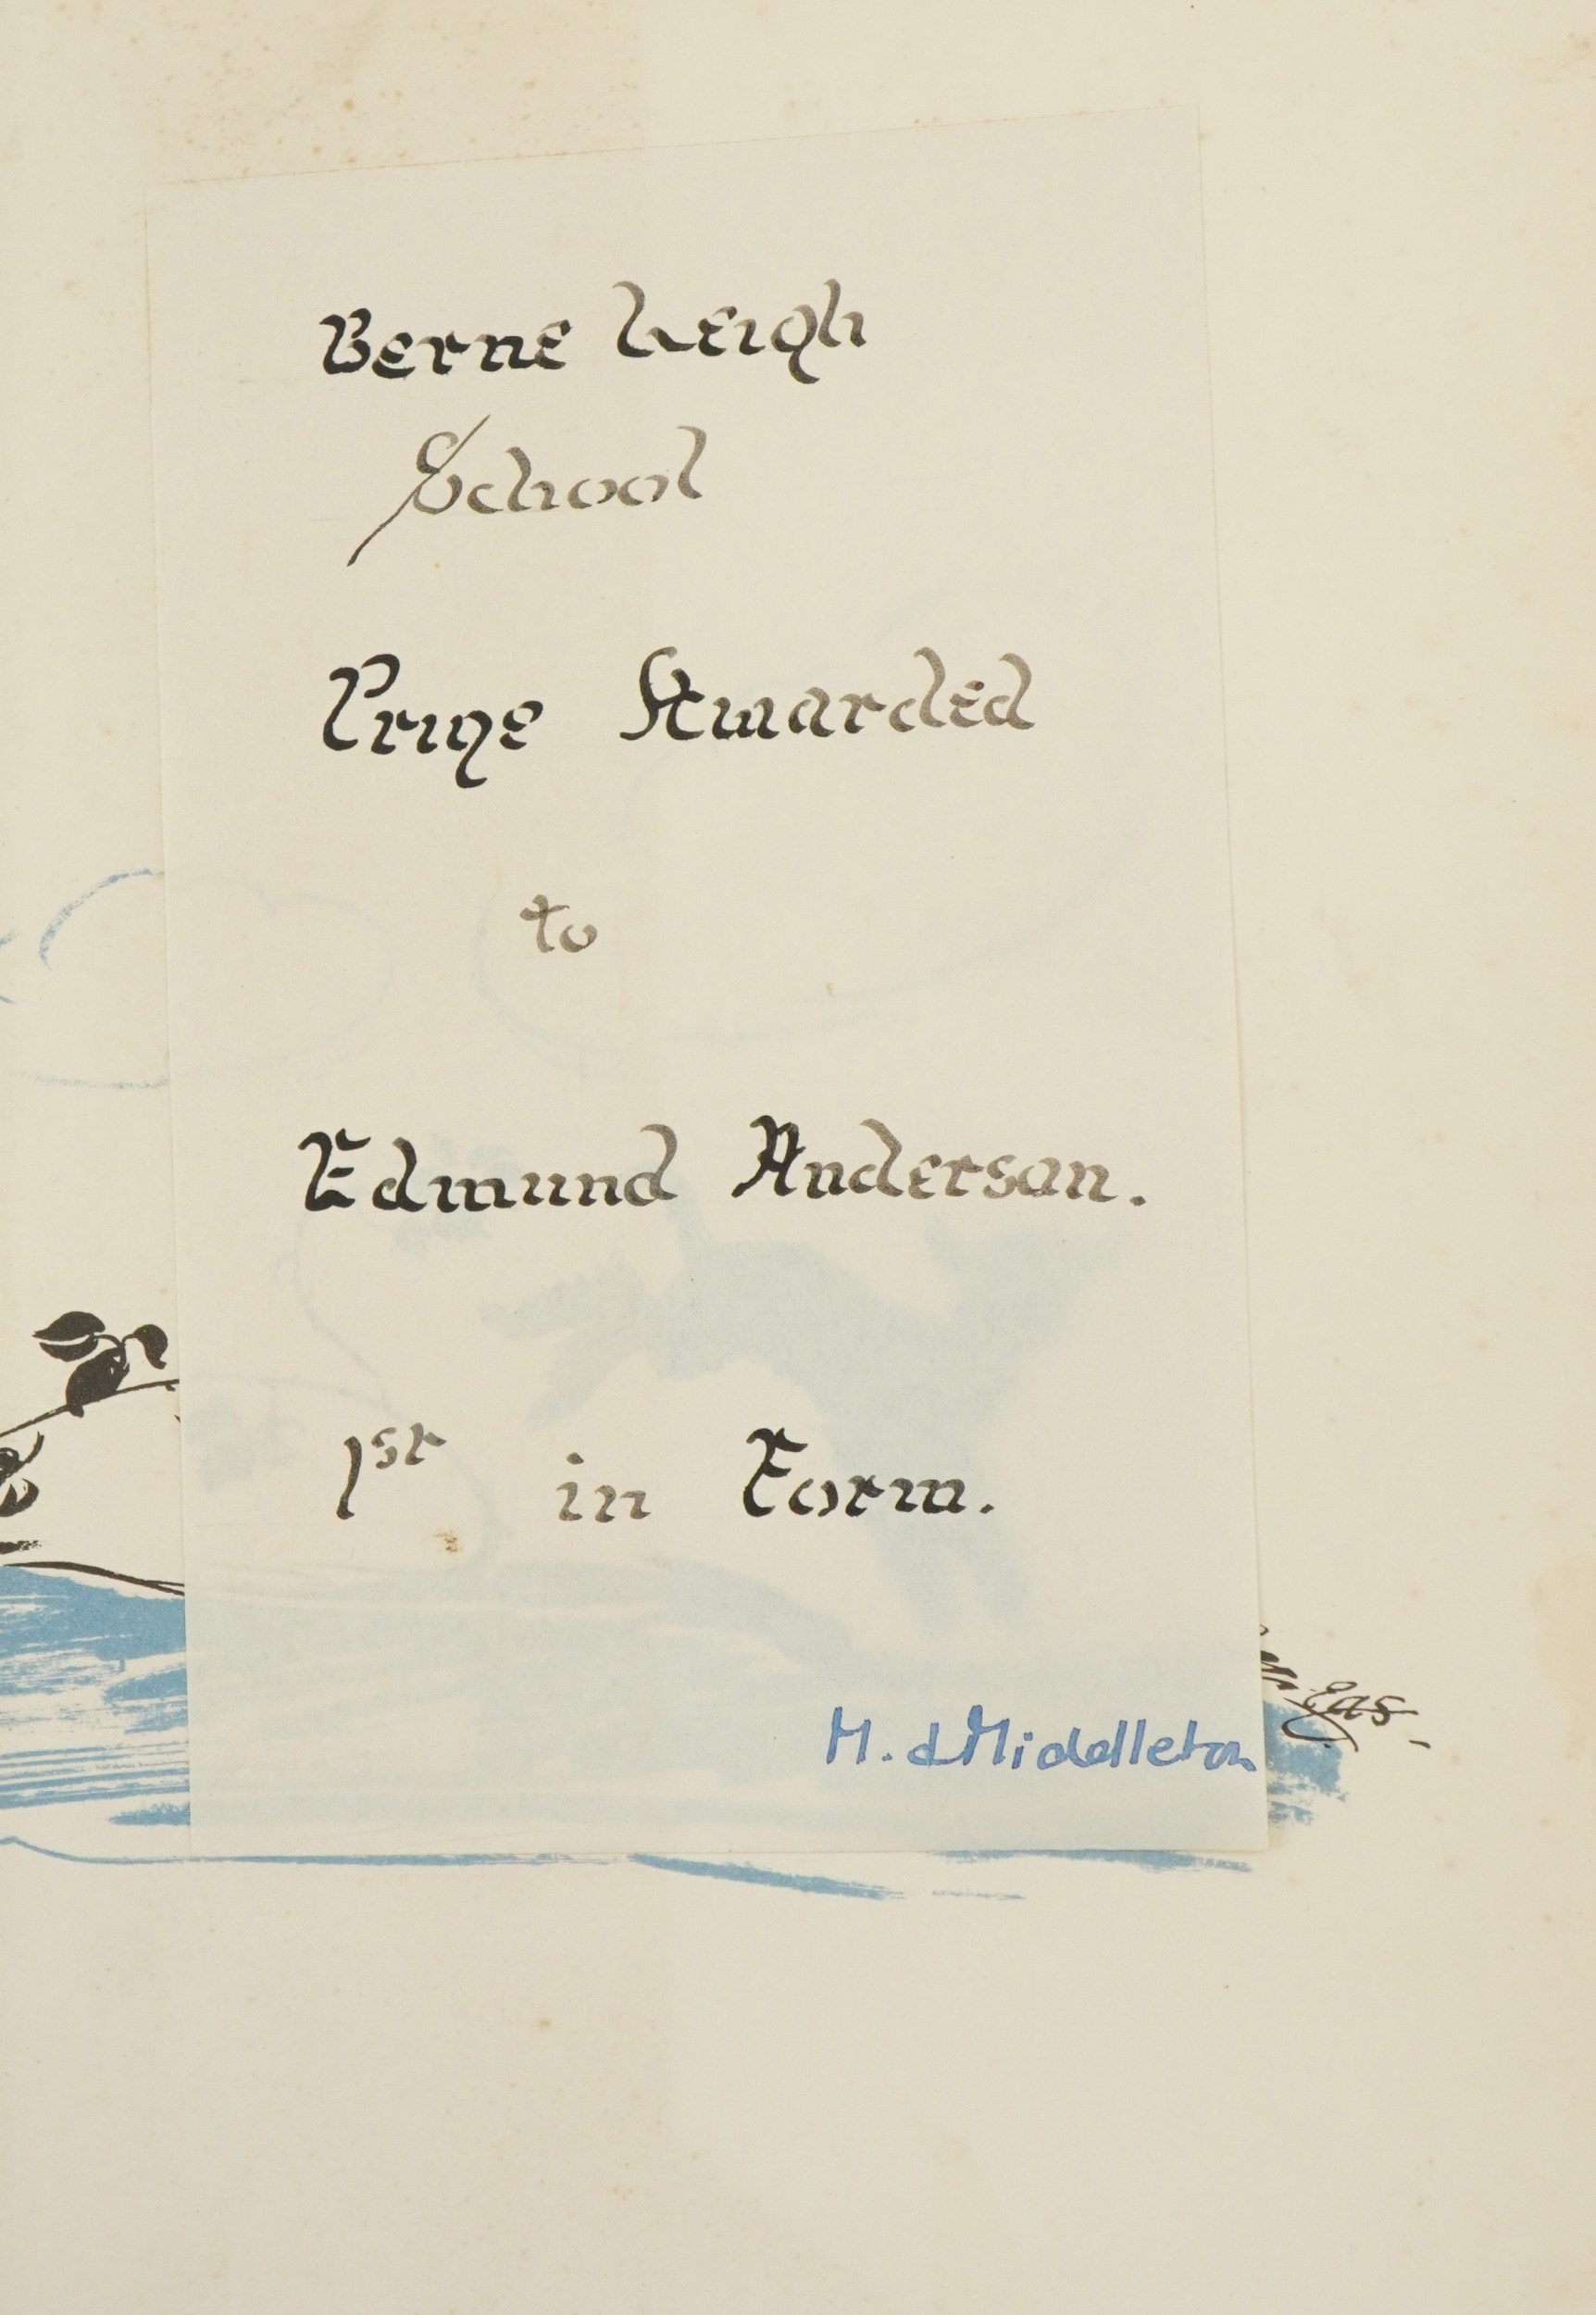 Berne Leigh
School
Prize Awarded
to
Edmund Anderson.
1st in Form.
H. d Middelleton